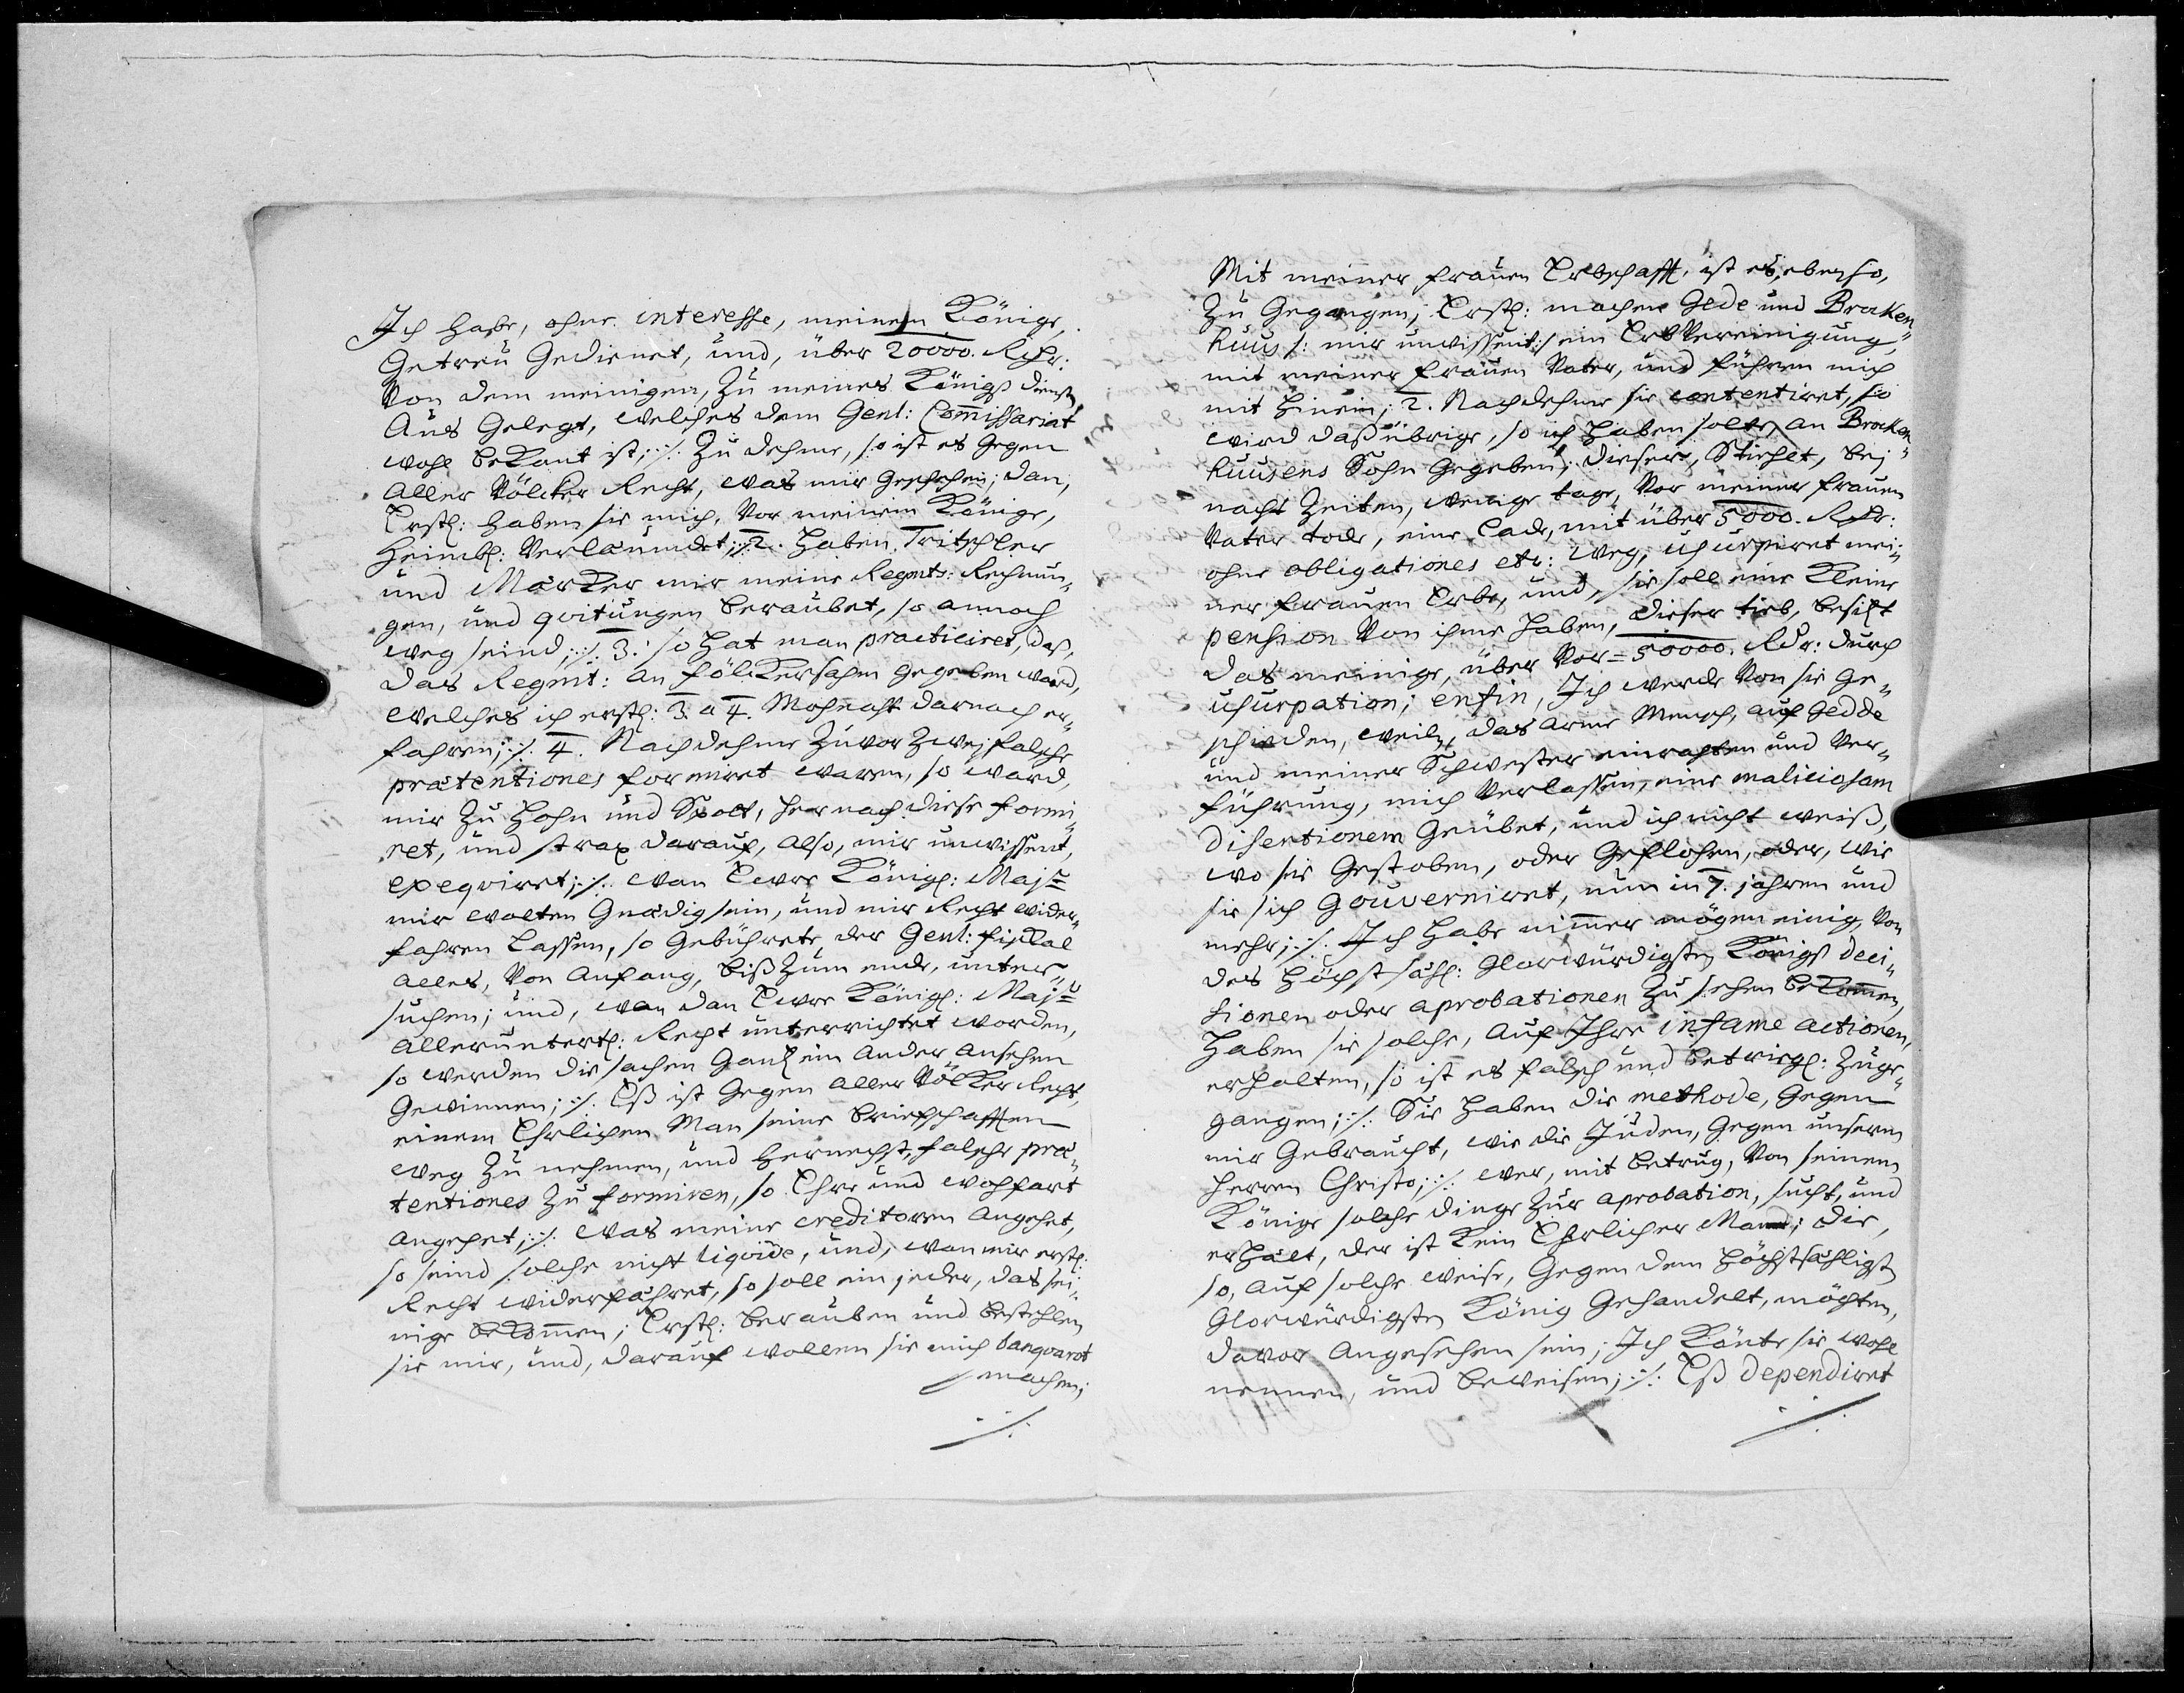 Ich habe, ohne interesse, meinem Könige,
Getreu Gedienet, und, über 20000. Rthr:
Von dem meinigen, Zu meines Königs dienst,
Aus Gelegt, welches dem Genl: Commissariat
wohl bekant ist; ·/· Zu dehme, so ist es Gegen
aller Völcker Recht, was mir Geschehen; dan,
Erstl: haben sie mich, Vor meinem Könige,
heimbl: Verläumdet; ·/· 2. haben Tritschler
und Märker mir meine Regmts: Rechnun„
gen, und qvitungen beraubet, so annoch
weg seind; ·/· 3. so hat man practiciret, daß,
das Regmt: an Fölkersahm gegeben ward,
welches ich erstl: 3 a 4. Mohnaht darnach er„
fahren; ·/· 4. Nachdehme Zuvor Zwej falsche
prætentiones formiret waren, so ward,
mir Zu Hohn und Spott, hernach diese formi„
ret, und strax darauf, also, mir unwissent,
exeqviret; ·/· wan Ewre Königl: Majtt
mir wolten Gnädig sein, und mir Recht wider„
fahren Lassen, so Gebührete, der Genl: fiskal
alles, Von Anfang, biß Zum ende, unter„
suchen; und, wan dan Ewre Königl: Majtt
allerunterth: Recht unterrichtet worden,
so werden die sachen Gantz ein ander ansehen
Gewinnen; ·/· Eß ist Gegen aller Völker Recht,
einem Ehrlichen Man seine briefschafften
weg Zu nehmen, und hernechst, falsche præ„
tentiones Zu formiren, so Ehre und wohlfart
angehet; ·/· was meine creditoren angehet,
so seind solche nicht liqvide, und, wan mir erstl:
Recht widerfähret, so soll ein jeder, das sei„
nige bekommen; Erstl: berauben und bestehlen
sie mir, und, darauf wollen sie mich banqvarot
machen;
·/·
Mit meiner frauen Erbschafft, ist es, eben so,
Zu Gegangen; Erstl: machen Gede und Brocken„
huus /: mir unwissent :/ ein Erb Vereinigung,
mit meiner frauen Vater, und führen mich
mit hinein; 2. Nachdehme sie contentiret, so
wird daß übrige, so ich haben solte, an Brocken„
huusens Sohn Gegeben; dieser, Stiehlet, bej
nacht Zeiten, wenige tage, Vor meiner frauen
Vater tode, eine Lade, mit über 5000. Rdr:
ohne obligationes etc: weg, usurpiret mei„
ner frauen Erbe, und, sie soll eine Kleine
pension Von ihme haben, dieser tieb, besitzt
das meinige, über Vor = 50000. Rdr: durch
usurpation; enfin, Ich werde Von sie Ge„
schieden, weiln, das arme Mensch, auf Gedde
und meiner Schwester einrahten und Ver„
führung, mich Verlassen, eine maliciosam
disertionem Geübet, und ich nicht weiß,
wo sie Gestoben, oder Geflohen, oder, wie
sie sich Gouverniret, nun in 7. jahren und
mehr; ·/· Ich habe nimmer mögen einig, Von
des höchstsähl: Glorwürdigsten Königs deci„
sionen oder aprobationen Zu sehen bekommen,
haben sie solche, auf Ihre infame actionen,
erhalten, so ist es falsch und betriegl: Zuge„
gangen; ·/· Sie haben die methode, Gegen
mir Gebraucht, wie die Juden, Gegen unsern
Herren Christo; ·/· wer, mit betrug, Von seinem
Könige solche dinge Zur aprobation, sucht, und
erhält, der ist kein Ehrlicher Mann; die,
so, auf solche weise, Gegen dem höchstsähligst
Glorwürdigsten König Gehandelt, möchten,
davor angesehen sein; Ich könte sie wohl
nennen, und beweisen; ·/· Eß dependiret
·/·